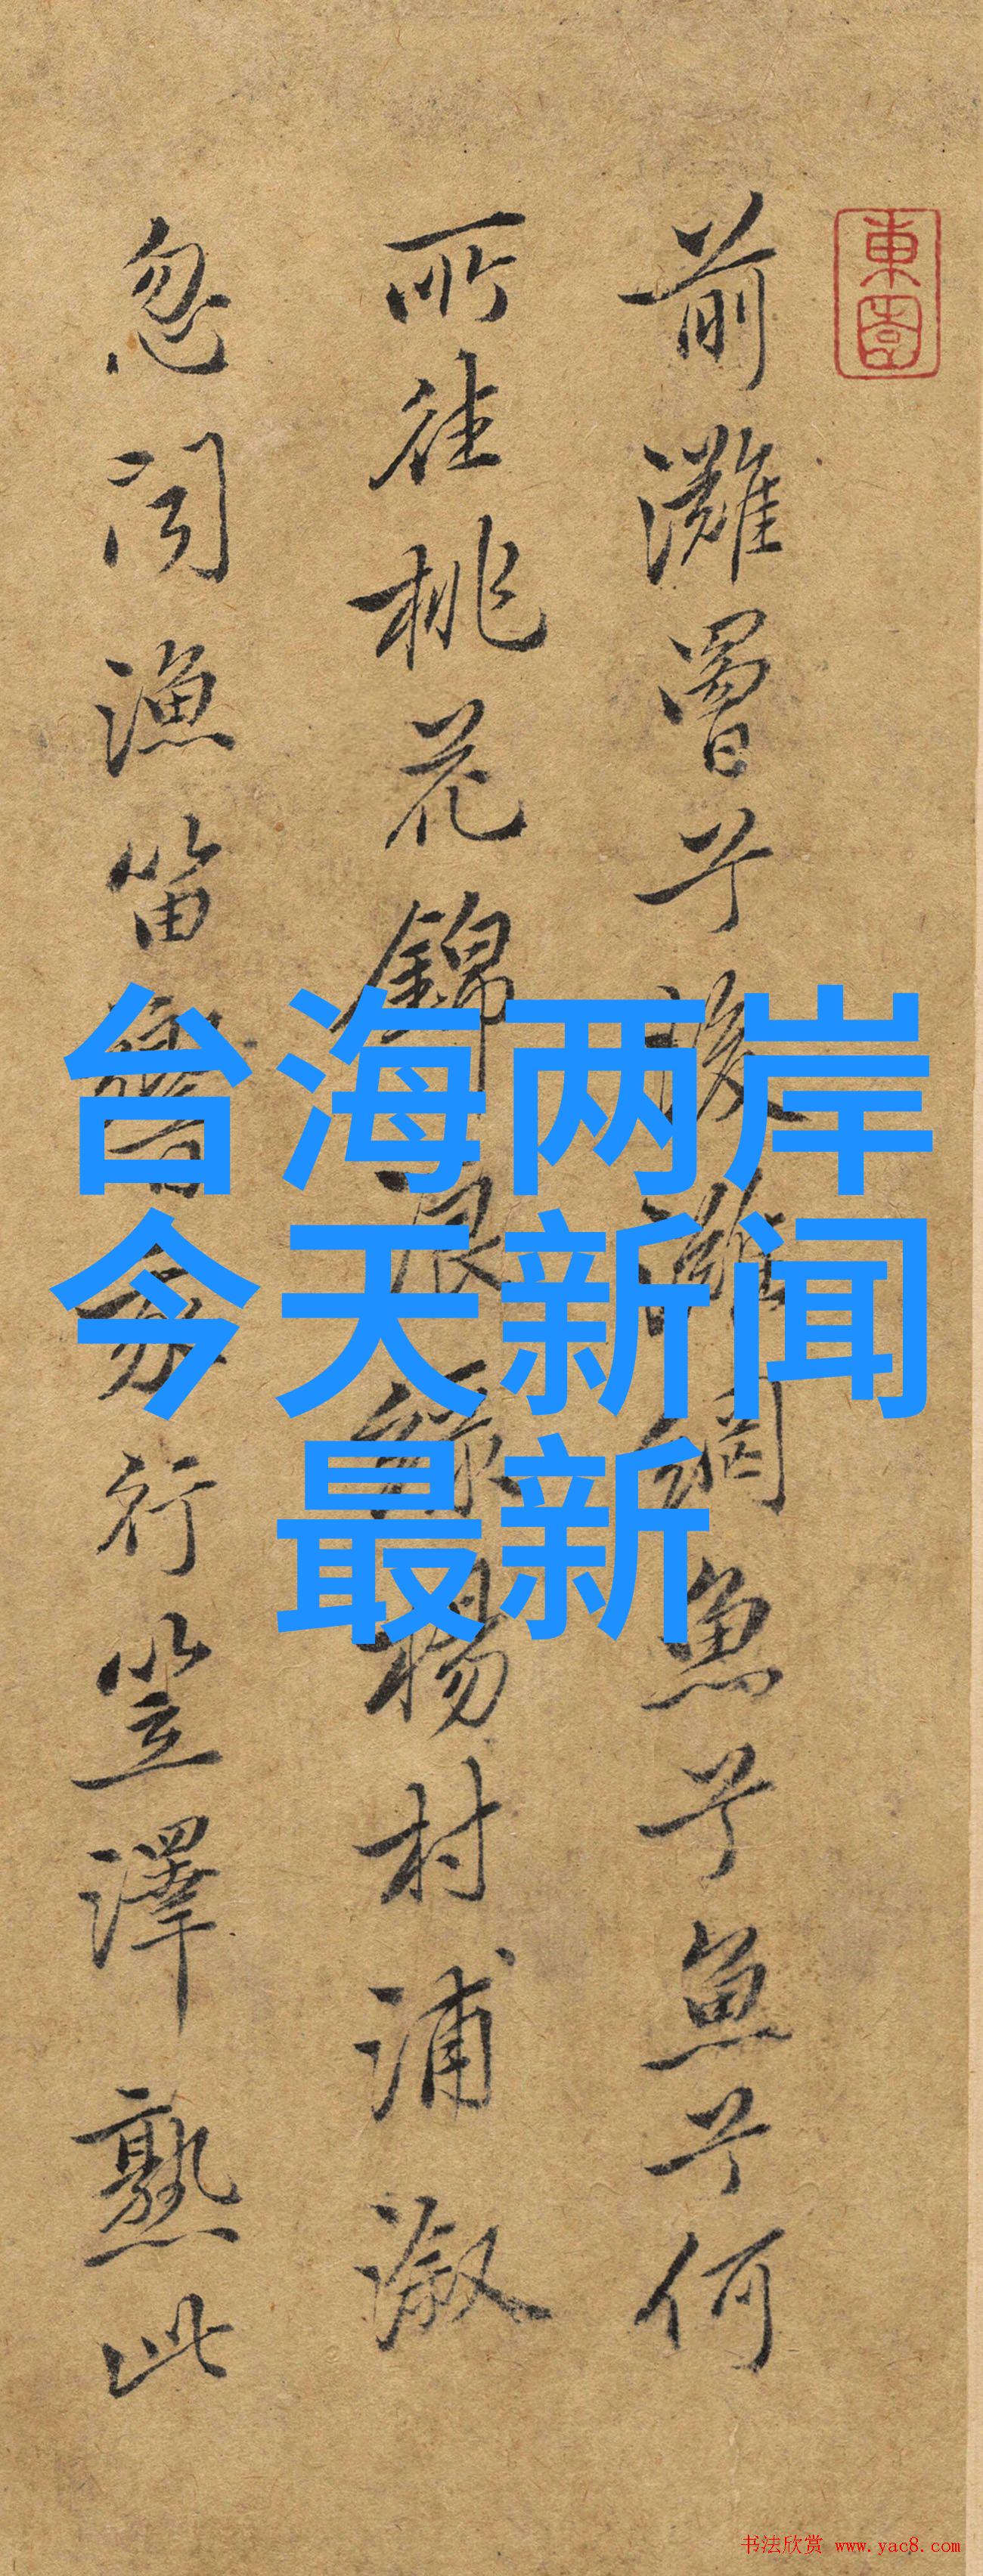 東園
前灘罾兮後灘網魚兮魚兮何
所往桃花錦浪綠楊村浦溆
忽聞漁笛響行笠澤熟此
台海两岸
今天新闻
最新
书法欣赏 www.yac8.com